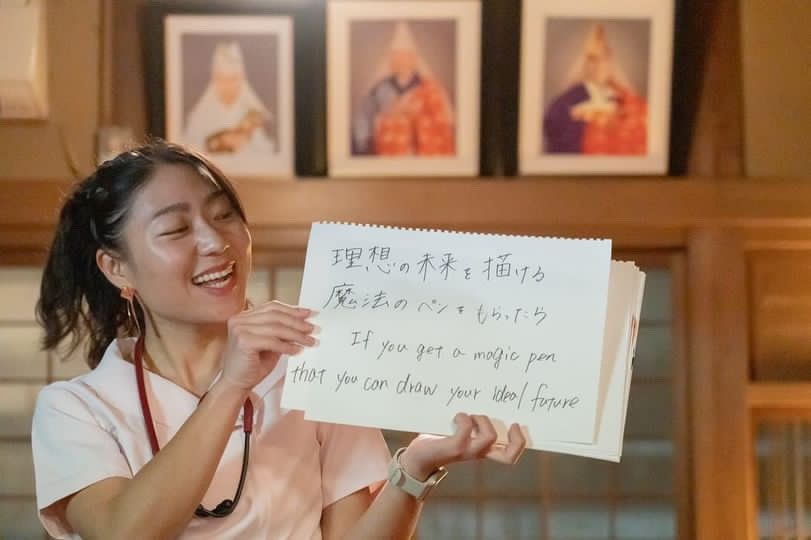 理想の未来を描ける
魔法のペンをもらったら
If you get a magic pen
that you can draw your ideal future